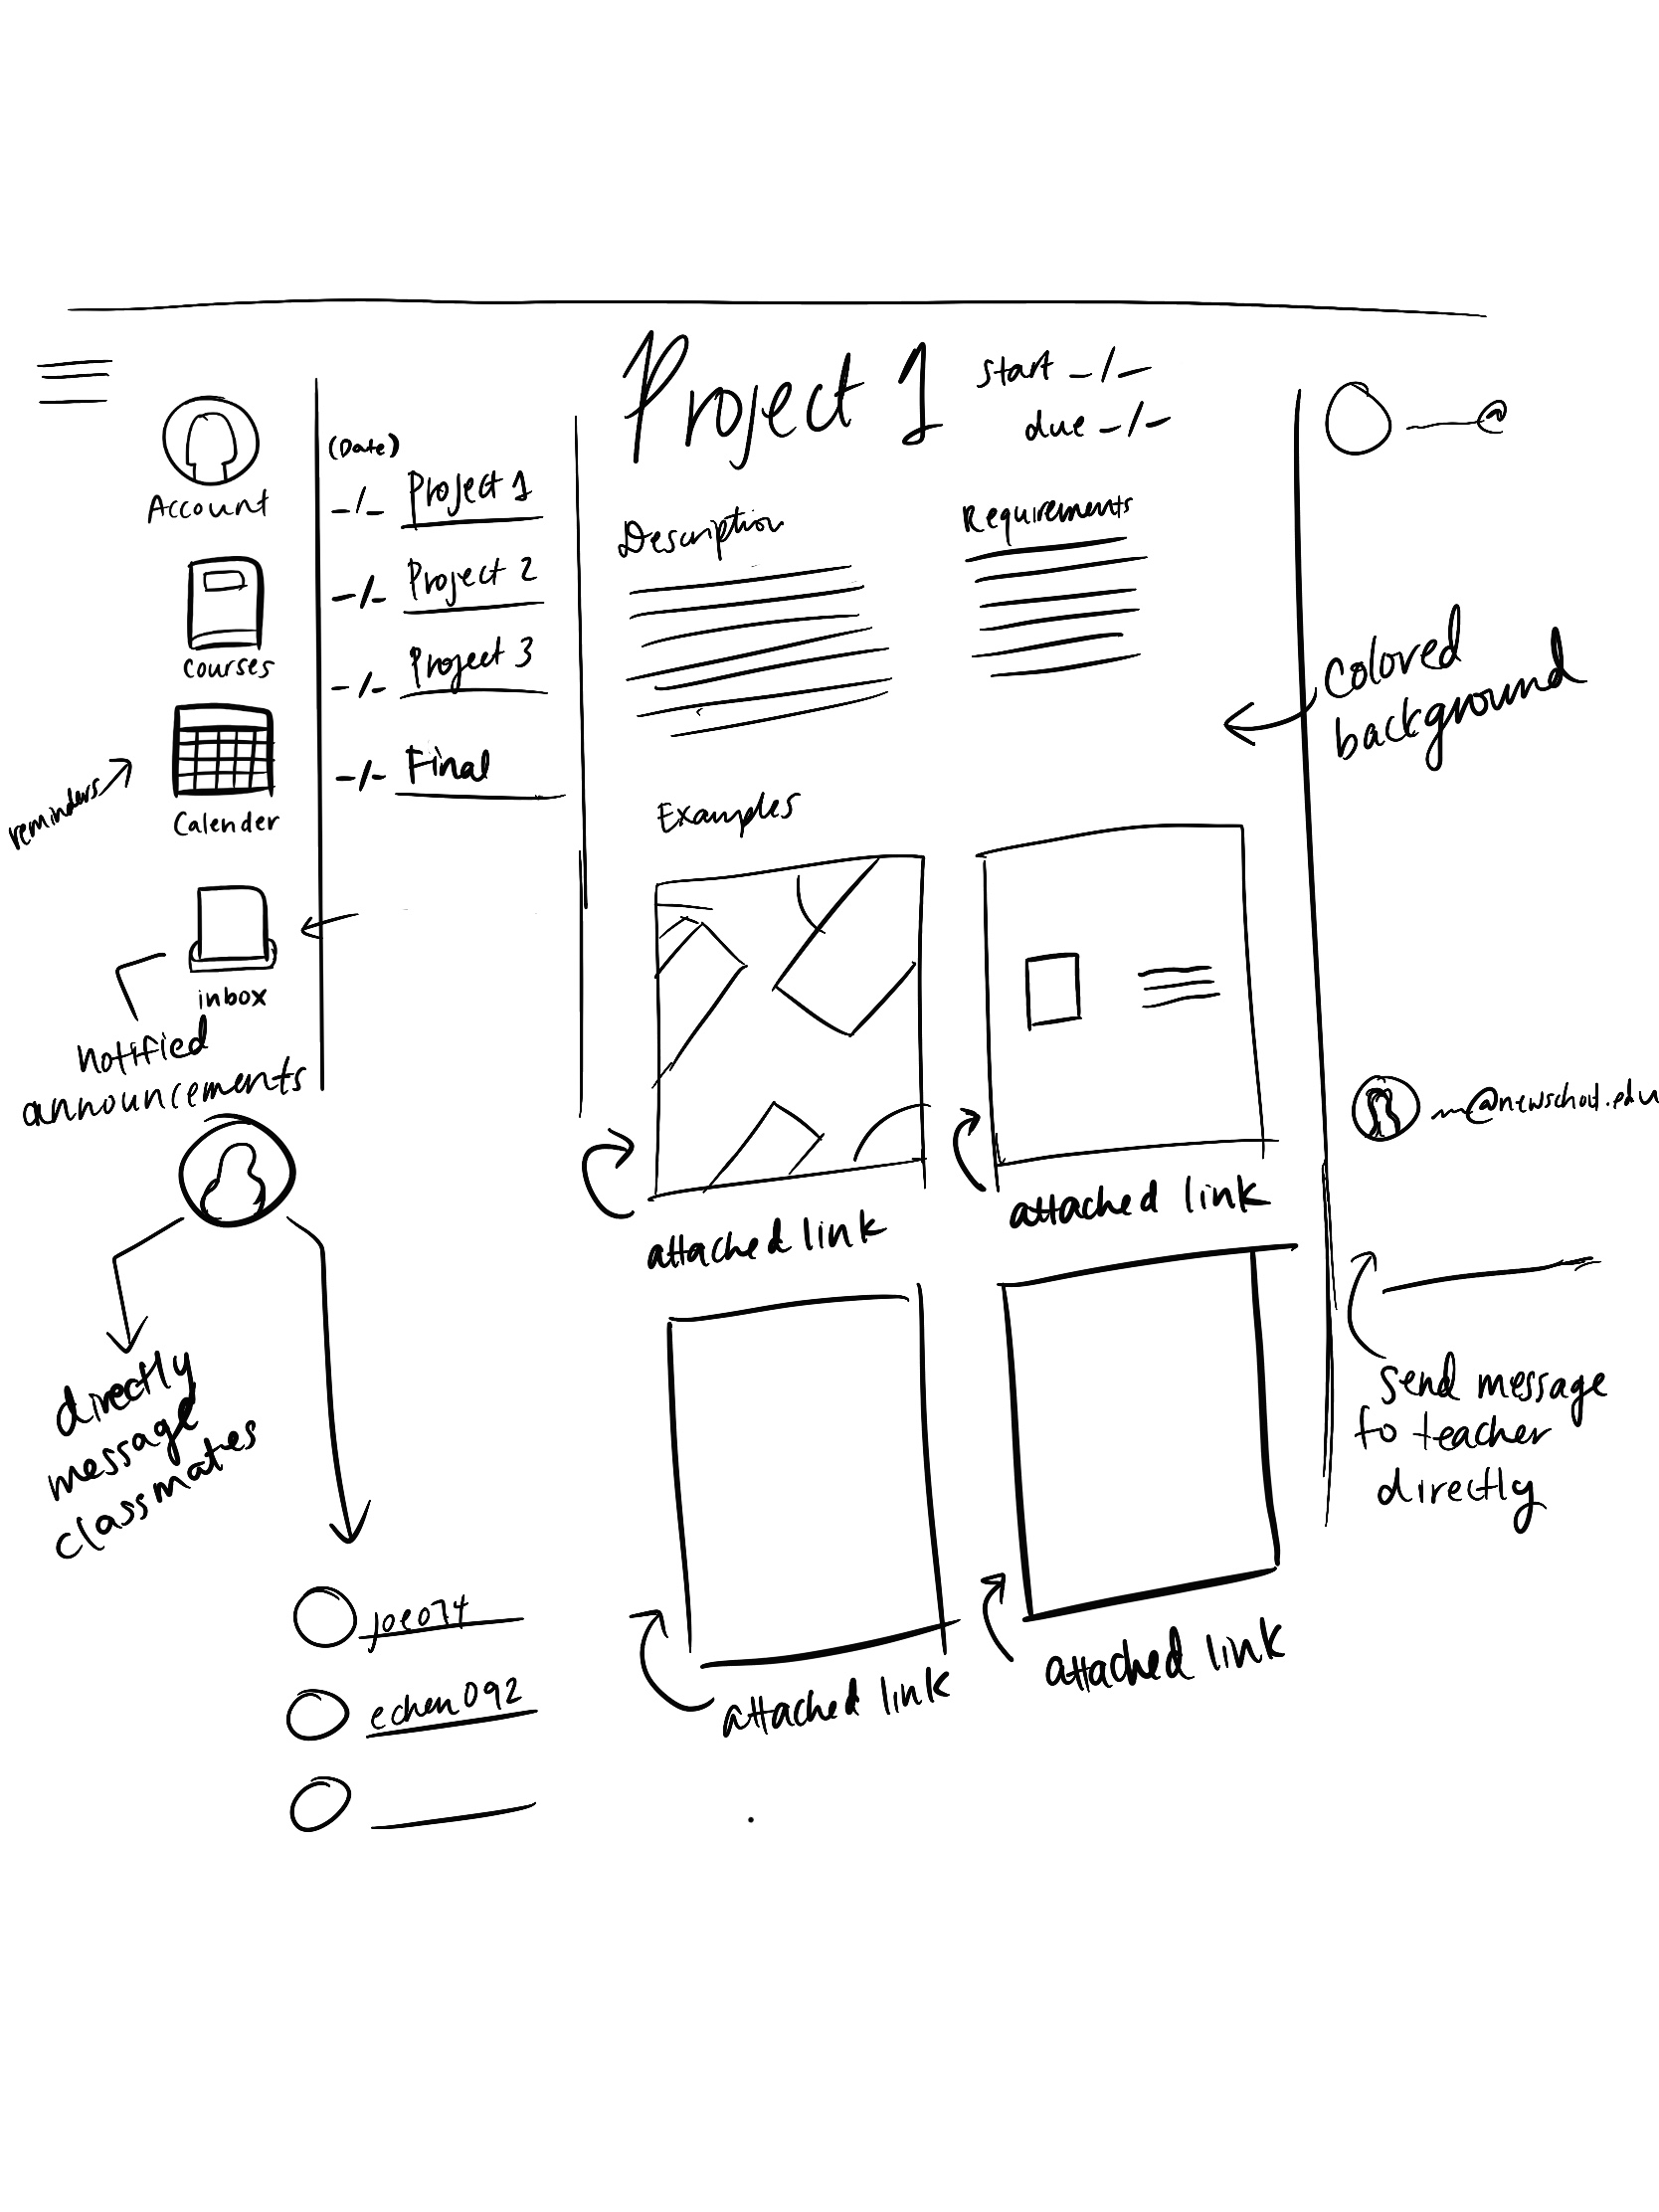 Account
courses
reminders
Calender
inbox
notified
announcements
directly
message
classmates
joe074
echen092
(Date)
-/- Project 1
-/- Project 2
-/- Project 3
-/- Final
Project 1
start -/-
due -/-
Description
Requirements
Examples
attached link
attached link
attached link
attached link
@
Colored
background
@newschool.edu
Send message
to teacher
directly